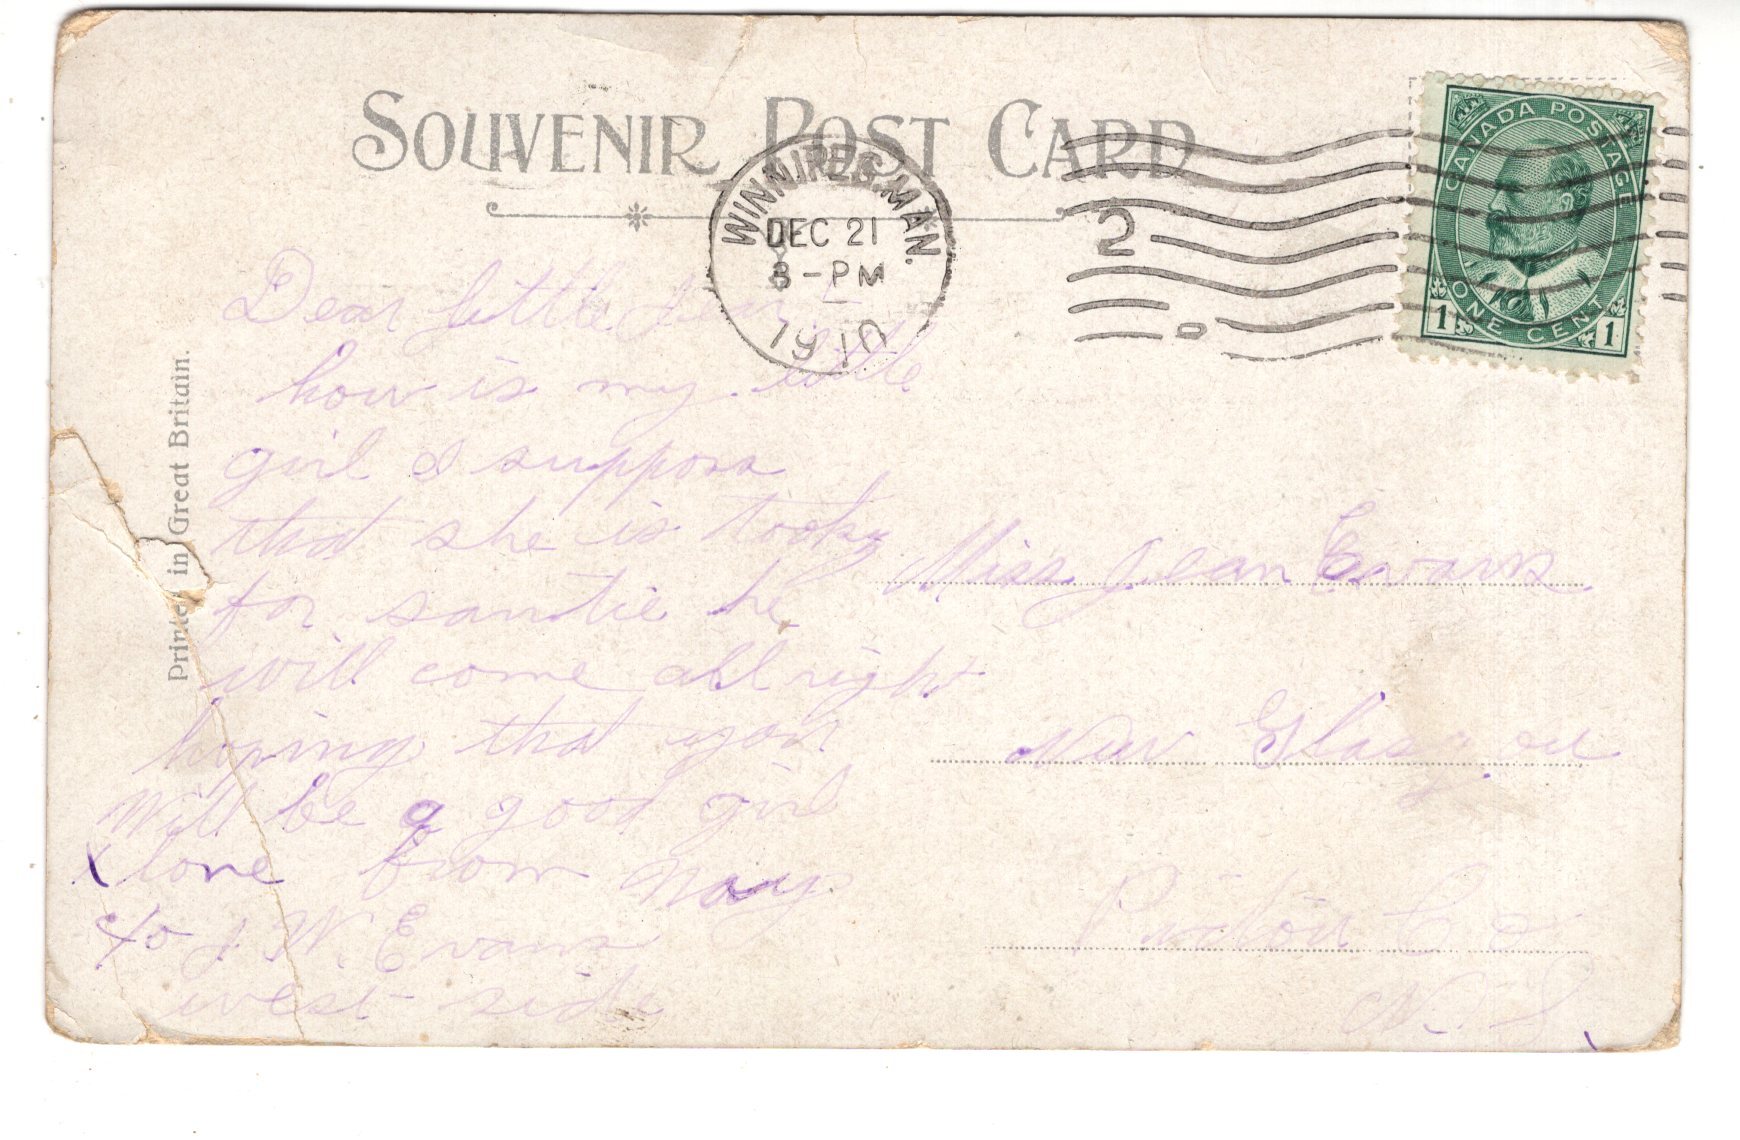 SOUVENIR POST CARD
WINNIPEG, MAN.
DEC 21
8-PM
1910
2
CANADA POSTAGE
1 ONE CENT 1
Printed in Great Britain.
Dear little Jean
how is my little
girl I suppose
that she is
for santie he
will come all right
hoping that you
will be a good girl
x love from May
c/o J W. Evans
west side
Miss Jean Evans
New Glasgow
Pictou Co
N.S.